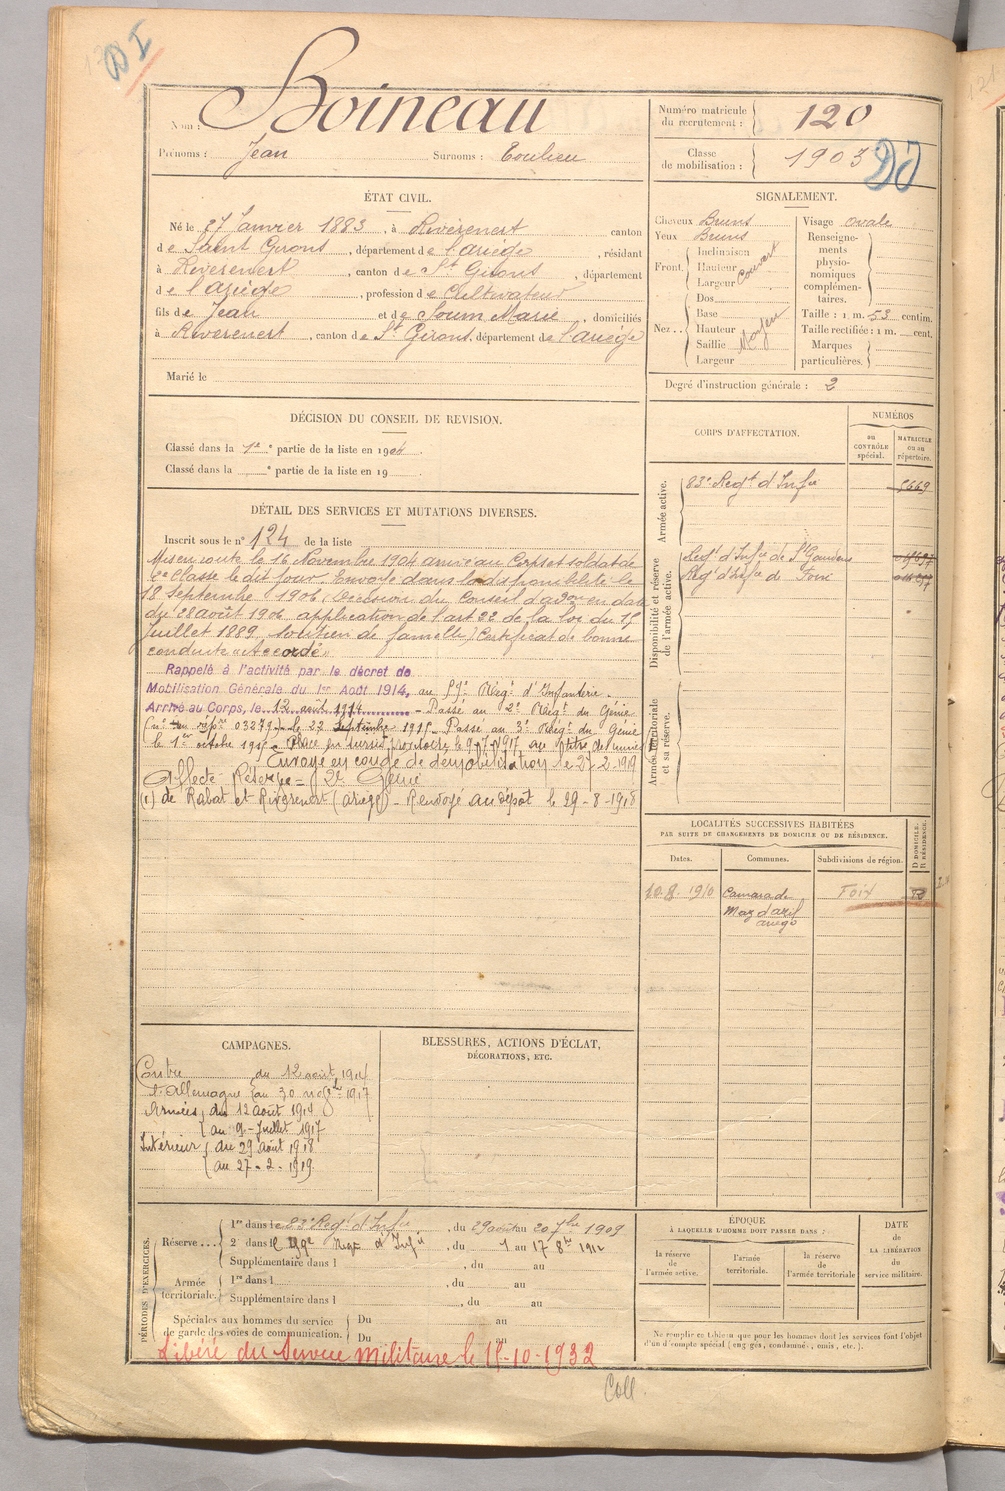 Nom : Boineau
Prénoms : Jean Surnoms : Toulieu
Numéro matricule du recrutement : 120
Classe de mobilisation : 1903
ÉTAT CIVIL.
Né le 27 Janvier 1883, à Rivèrenert canton
de Saint Girons, département de l'ariège, résidant
à Rivèrenert, canton de St Girons, département
de l'ariège, profession de Cultivateur
fils de Jean et de Soum Marie, domiciliés
à Riverenert, canton de St Girons, département de l'ariège
Marié le
SIGNALEMENT.
Cheveux Bruns
Yeux Bruns
Front. Inclinaison Hauteur Largeur couvert
Nez.. Dos Base Hauteur Saillie Largeur Moyen
Visage ovale
Renseignements physionomiques complémentaires.
Taille : 1 m. 53 centim.
Taille rectifiée : 1 m. cent.
Marques particulières.
Degré d'instruction générale : 2
DÉCISION DU CONSEIL DE REVISION.
Classé dans la 1re partie de la liste en 1904.
Classé dans la e partie de la liste en 19
DÉTAIL DES SERVICES ET MUTATIONS DIVERSES.
Inscrit sous le n° 124 de la liste
Mis en route le 16 Novembre 1904 arrivé au Corps et soldat de
2e Classe le dit jour. Envoyé dans la disponibilité le
18 Septembre 1906 (Décision du Conseil d'adon en date
du 28 août 1906 application de l'art 22 de la loi du 15
Juillet 1889, soutien de famille) Certificat de bonne
conduite « Accordé »
Rappelé à l'activité par le décret de
Mobilisation Générale du 1er Août 1914, au Régt d'Infanterie.
Arrivé au Corps, le 12 août 1914 - Passé au 2e Régt du Génie
03279) le 22 Septembre 1915 Passé au 3e Régt du Génie
le 1er octobre 1915 Placé en sursis le 9-7-1917 au titre de
Envoyé en congé de démobilisation le 27-2-1919
Affecté Réserve = 2e Génie
(1) de Rabat et Rivèrenert (ariège) - Renvoyé au dépôt le 29-8-1918
CORPS D'AFFECTATION.
NUMÉROS
au CONTRÔLE spécial.
MATRICULE ou au répertoire.
Armée active.
83e Regt d'Infie
Disponibilité et réserve de l'armée active.
Regt d'Infie de St Gaudens
Regt d'Infie de Foix
Armée territoriale et sa réserve.
LOCALITÉS SUCCESSIVES HABITÉES
PAR SUITE DE CHANGEMENTS DE DOMICILE OU DE RÉSIDENCE.
Dates. Communes. Subdivisions de région. D DOMICILE. R RÉSIDENCE.
10-8-1910 Camarade Foix R
Maz d'azil
ariège
CAMPAGNES.
Contre du 12 août 1914
l'Allemagne au 30 novbre 1917
Armées du 12 août 1914
au 9 Juillet 1917
Intérieur du 29 août 1918
au 27-2-1919
BLESSURES, ACTIONS D'ÉCLAT,
DÉCORATIONS, ETC.
PÉRIODES D'EXERCICES.
Réserve... 1re dans le 83e Regt d'Infie, du 29 août au 20 7bre 1909
2e dans le Regt d'Infie, du 1 au 17 8bre 1912
Supplémentaire dans l , du au
Armée territoriale. 1re dans l , du au
Supplémentaire dans l , du au
Spéciales aux hommes du service de garde des voies de communication. Du au
Du au
Libéré du Service Militaire le 15-10-1932
ÉPOQUE
À LAQUELLE L'HOMME DOIT PASSER DANS :
la réserve de l'armée active.
l'armée territoriale.
la réserve de l'armée territoriale
DATE de LA LIBÉRATION du service militaire.
Ne remplir ce tableau que pour les hommes dont les services font l'objet
d'un décompte spécial (engagés, condamnés, omis, etc.).
Coll.